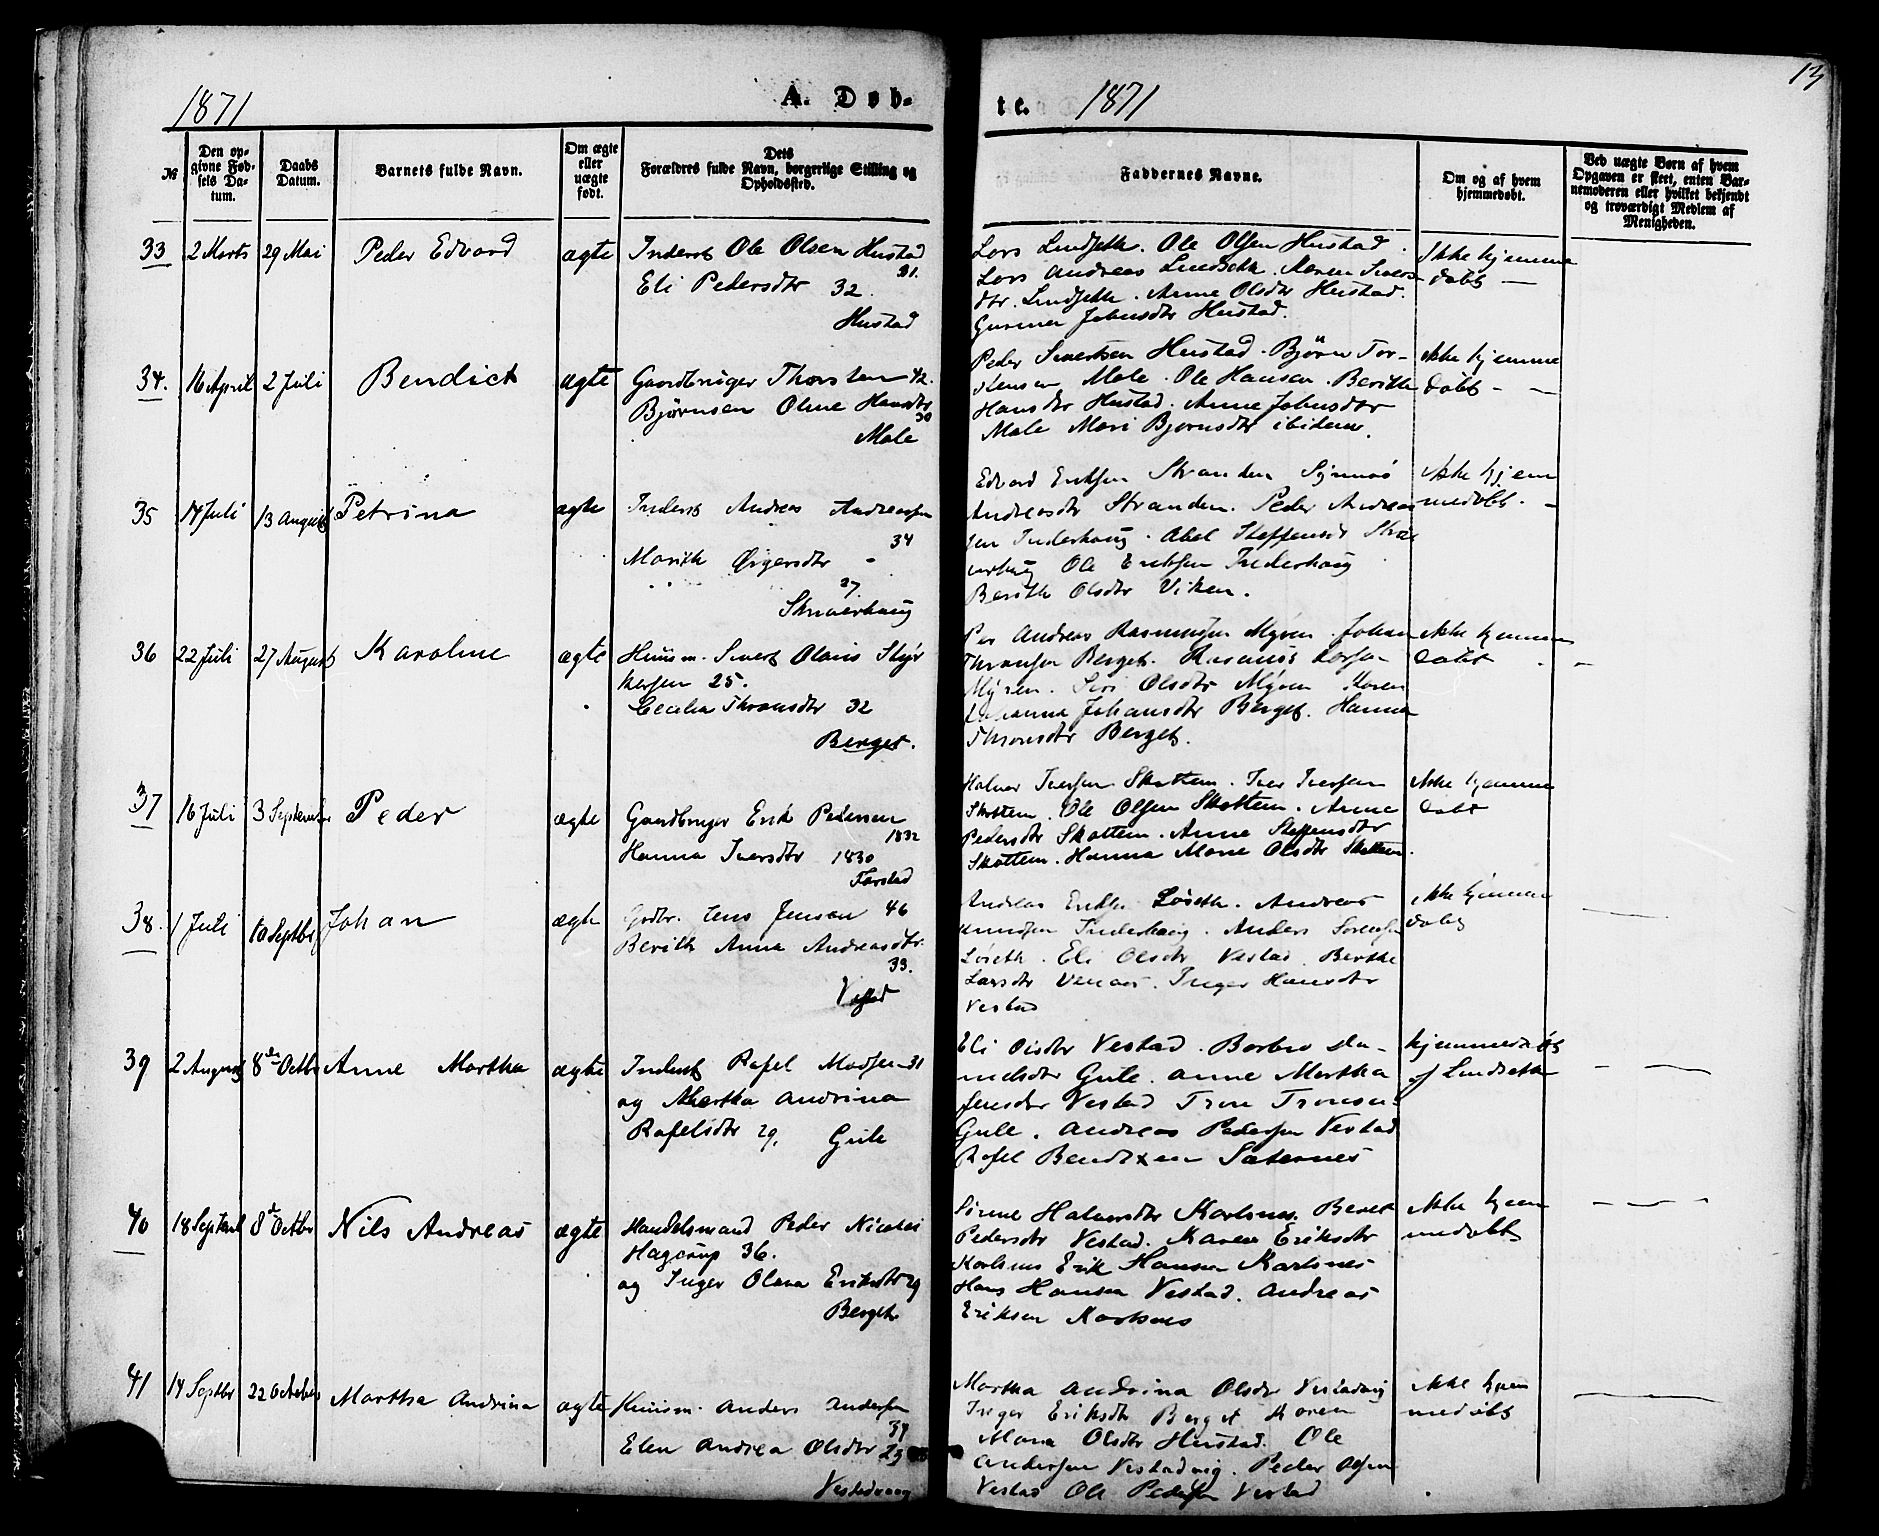 1871
A. Døb-
te.
1871
13
№
Den op-
givne Fød-
sels Da-
tum.
Daabs
Datum.
Barnets fulde Navn.
Om ægte
eller
uægte
født.
Dets
Forældres fulde Navn, borgerlige Stilling og
Opholdssted.
Faddernes Navne.
Om og af hvem
hjemmedøbt.
Ved uægte Børn af hvem
Opgaven er skeet, enten Bar-
nemoderen eller hvilket bekjendt
og troværdigt Medlem af
Menigheden.
33
2 Marts
29 Mai
Peder Edvard
ægte
Inderst Ole Olsen Hustad
31.
Eli Pedersdtr 32.
Hustad
Lars Lindseth. Ole Olsen Hustad.
Lars Andreas Lindseth. Maren Sivers-
dtr. Lindseth. Anne Olsdtr Hustad.
Gurina Johnsdtr Hustad.
Ikke hjemme
døbt —
34.
16 April
2 Juli
Bendict
ægte
Gaardbruger Thorsten 42.
Bjørnsen Oline Hansdtr
30
Male
Peder Sivertsen Hustad. Bjørn Tor-
stensen Male. Ole Hansen. Berith
Hansdtr Hustad. Anne Johnsdtr
Male Mari Bjørnsdtr ibidem.
Ikke hjemme
døbt - —
35
14 Juli
13 August
Petrina
ægte
Inderst Andreas Andreassen
34
Marith Ørgersdtr -
27.
Skruerhaug
Edvard Eriksen Stranden Synnøv
Andreasdtr Stranden. Peder Andreas
sen Inderhaug. Abel Steffensdtr Skru
erhaug Ole Eriksen Inderhaug
Berith Olsdtr Viken.
Ikke hjem
medøbt. -
36
22 Juli
27 August
Karoline
ægte
Huusm. Sivert Olaus Styr
kersen 25.
Cecilia Thronsdtr 32
Berget.
Per Andreas Rasmussen Myren. Johan
Thronsen Berget. Rasmus Larsen
Myren. Siri Olsdtr Myren Karen
Johanna Johansdtr Berget. Hanna
Thronsdtr Berget.
Ikke hjemme
døbt - -
37
16 Juli
3 September
Peder
ægte
Gaardbruger Erik Pedersen
1832
Hanna Iversdtr 1830
Farstad
Halvor Iversen Skottem. Iver Iversen
Skottem. Ole Olsen Skottem. Anne
Pedersdtr Skottem. Anne Steffensdtr
Skottem. Hanna Marie Olsdtr Skottem.
Ikke hjemme
døbt
38.
1 Juli
10 Septbr
Johan
ægte
Grdbr. Jens Jensen 46
Berith Anna Andreasdtr.
33.
Vestad
Andreas Løseth. Andreas
Inderhaug. Anders Sørensen
Løseth. Eli Olsdtr Vestad Berthe
Larsdtr Venaas. Inger Hansdtr
Vestad
Ikke hjemme
døbt
39
2 August
8de Octbr
Anne Martha
ægte
Inderst Rafel Madsen 31
og Martha Andrina
Rafelsdtr 29. Gule
Eli Olsdtr Vestad. Barbro Da-
nielsdtr Gule. Anne Martha
Jensdtr Vestad Tron Tronsen
Gule. Andreas Pedersen Vestad
Rafel Bendixen Saternes
hjemmedøbt
af Lindseth
40
18 Septemb
8de Octbr
Nils Andreas
ægte
Handelsmand Peder Nicolai
Hagerup 36.
og Inger Olava Eriksdtr 29
Berget
Sirine Halvorsdtr Karlsnes. Beret
Pedersdtr Vestad. Karen Eriksdtr
Karlsnes Erik Hansen Karlsnes
Hans Hansen Vestad. Andreas
Eriksen Karlsnes
Ikke hjem
medøbt
41
14 Septbr
22 October
Martha Andrina
ægte
Huusm. Anders Andersen
34
Elen Andrea Olsdtr 23
Vestadvaag
Martha Andrina Olsdtr Vestadvig
Inger Eriksdtr Berget Karen
Maria Olsdtr Hustad. Ole
Andersen Vestadvig. Peder Olsen
Vestad Ole Pedersen Vestad
Ikke hjem
medøbt